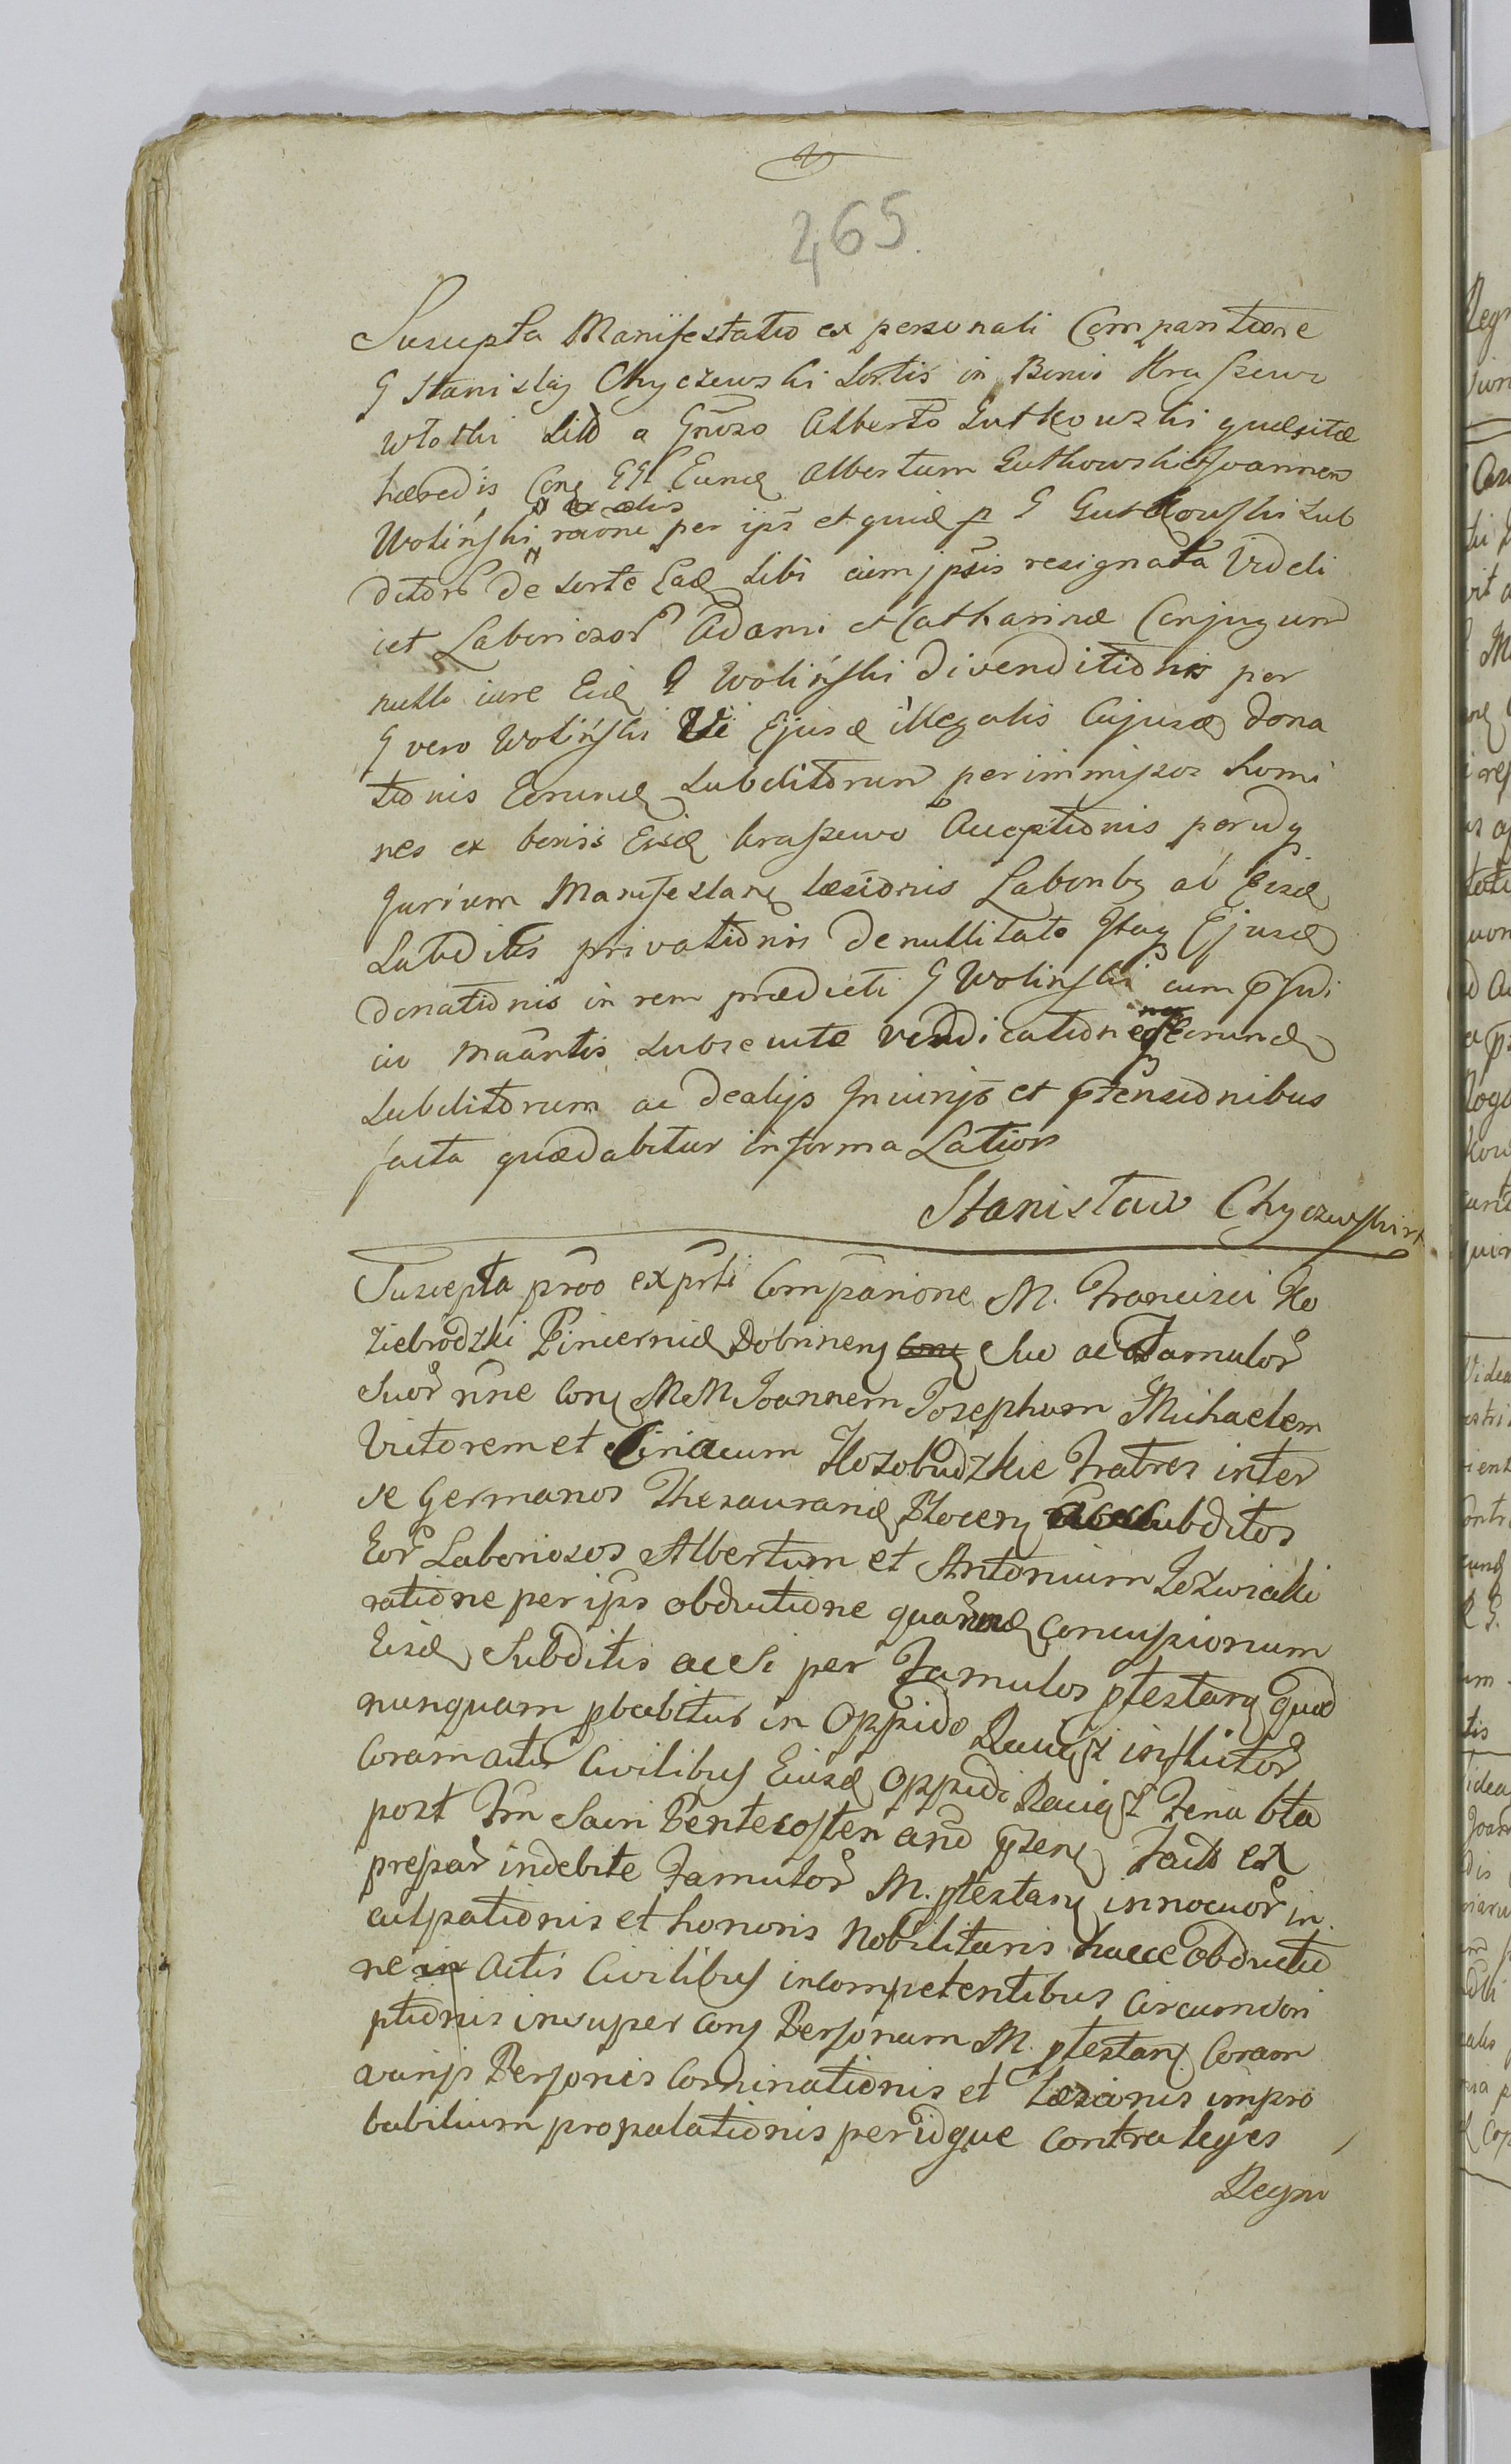 265.
Suscepta Manifestatio ex personali Comparitione
G Stanislaj Chyczewski Sortis in Bonis Kraszewo
Włotki Sitto a Gnoso Alberto Gutkowski quaesitae
haeredis Cong GG Eundq Albertum Gutkowski et Joannem
Woliński raone per ips et quid p G Gutkowski Sub
ditor de sorte Eadq sibi cum ipsis resignata Videli
cet Laboriosor Adami et Catharinae Conjugum
nullo iure Eidq G Woliński divenditionis per
G vero Woliński Vi Ejusdq illegalis Cujusdq dona
tionis Eorundq Subditorum per immissos homi
nes ex bonis Eisdq Kraszewo Acceptionis per idq
Jurium Manifestang laesionis Laboribq ab Eisdq
Subditis privationis de nullitate Itaq Ejusdq
donationis in rem praedicti G Wolinski cum pjudi
cio Maantis subsecutae vendicationeq Eorundq
Subditorum ac de alijs Injurijs et ptensionibus
facta quae dabitur in forma Latiori
Stanisław Chyczewski
Suscepta prõo ex prłi Comparione M. Francisci Ko
ziebrodzki Pincernae Dobrineng Suo ac Famulor
Suor nne Cong MM Joannem Josephum Michaelem
Victorem et Ciriacum Kozobudzkie Fratres inter
se Germanos Thesauraridq Ploceng ac Subditos
Eor Laboriosos Albertum et Antonium
ratione per ips obductione quarundq Concussionum
Eisdq Subditis ac si per Famulos ptestang quod
nunquam pbabitur in Oppido Raciąż inflictor
Coram actis Civilibus Ejusdq Oppidi Raciąż Feria 6ta
post Fm Sacri Pentecosten anò pzenq
indebite Famulor M. ptestang innocuor in
culpationis et honoris Nobilitaris hacce obductio
ne in Actis Civilibus incompetentibus Circumscri
ptionis insuper Cong Personam M. ptestang Coram
varijs Personis Cominationis et Laesionis impro
babilium propalationis per idque contra leges
Regni